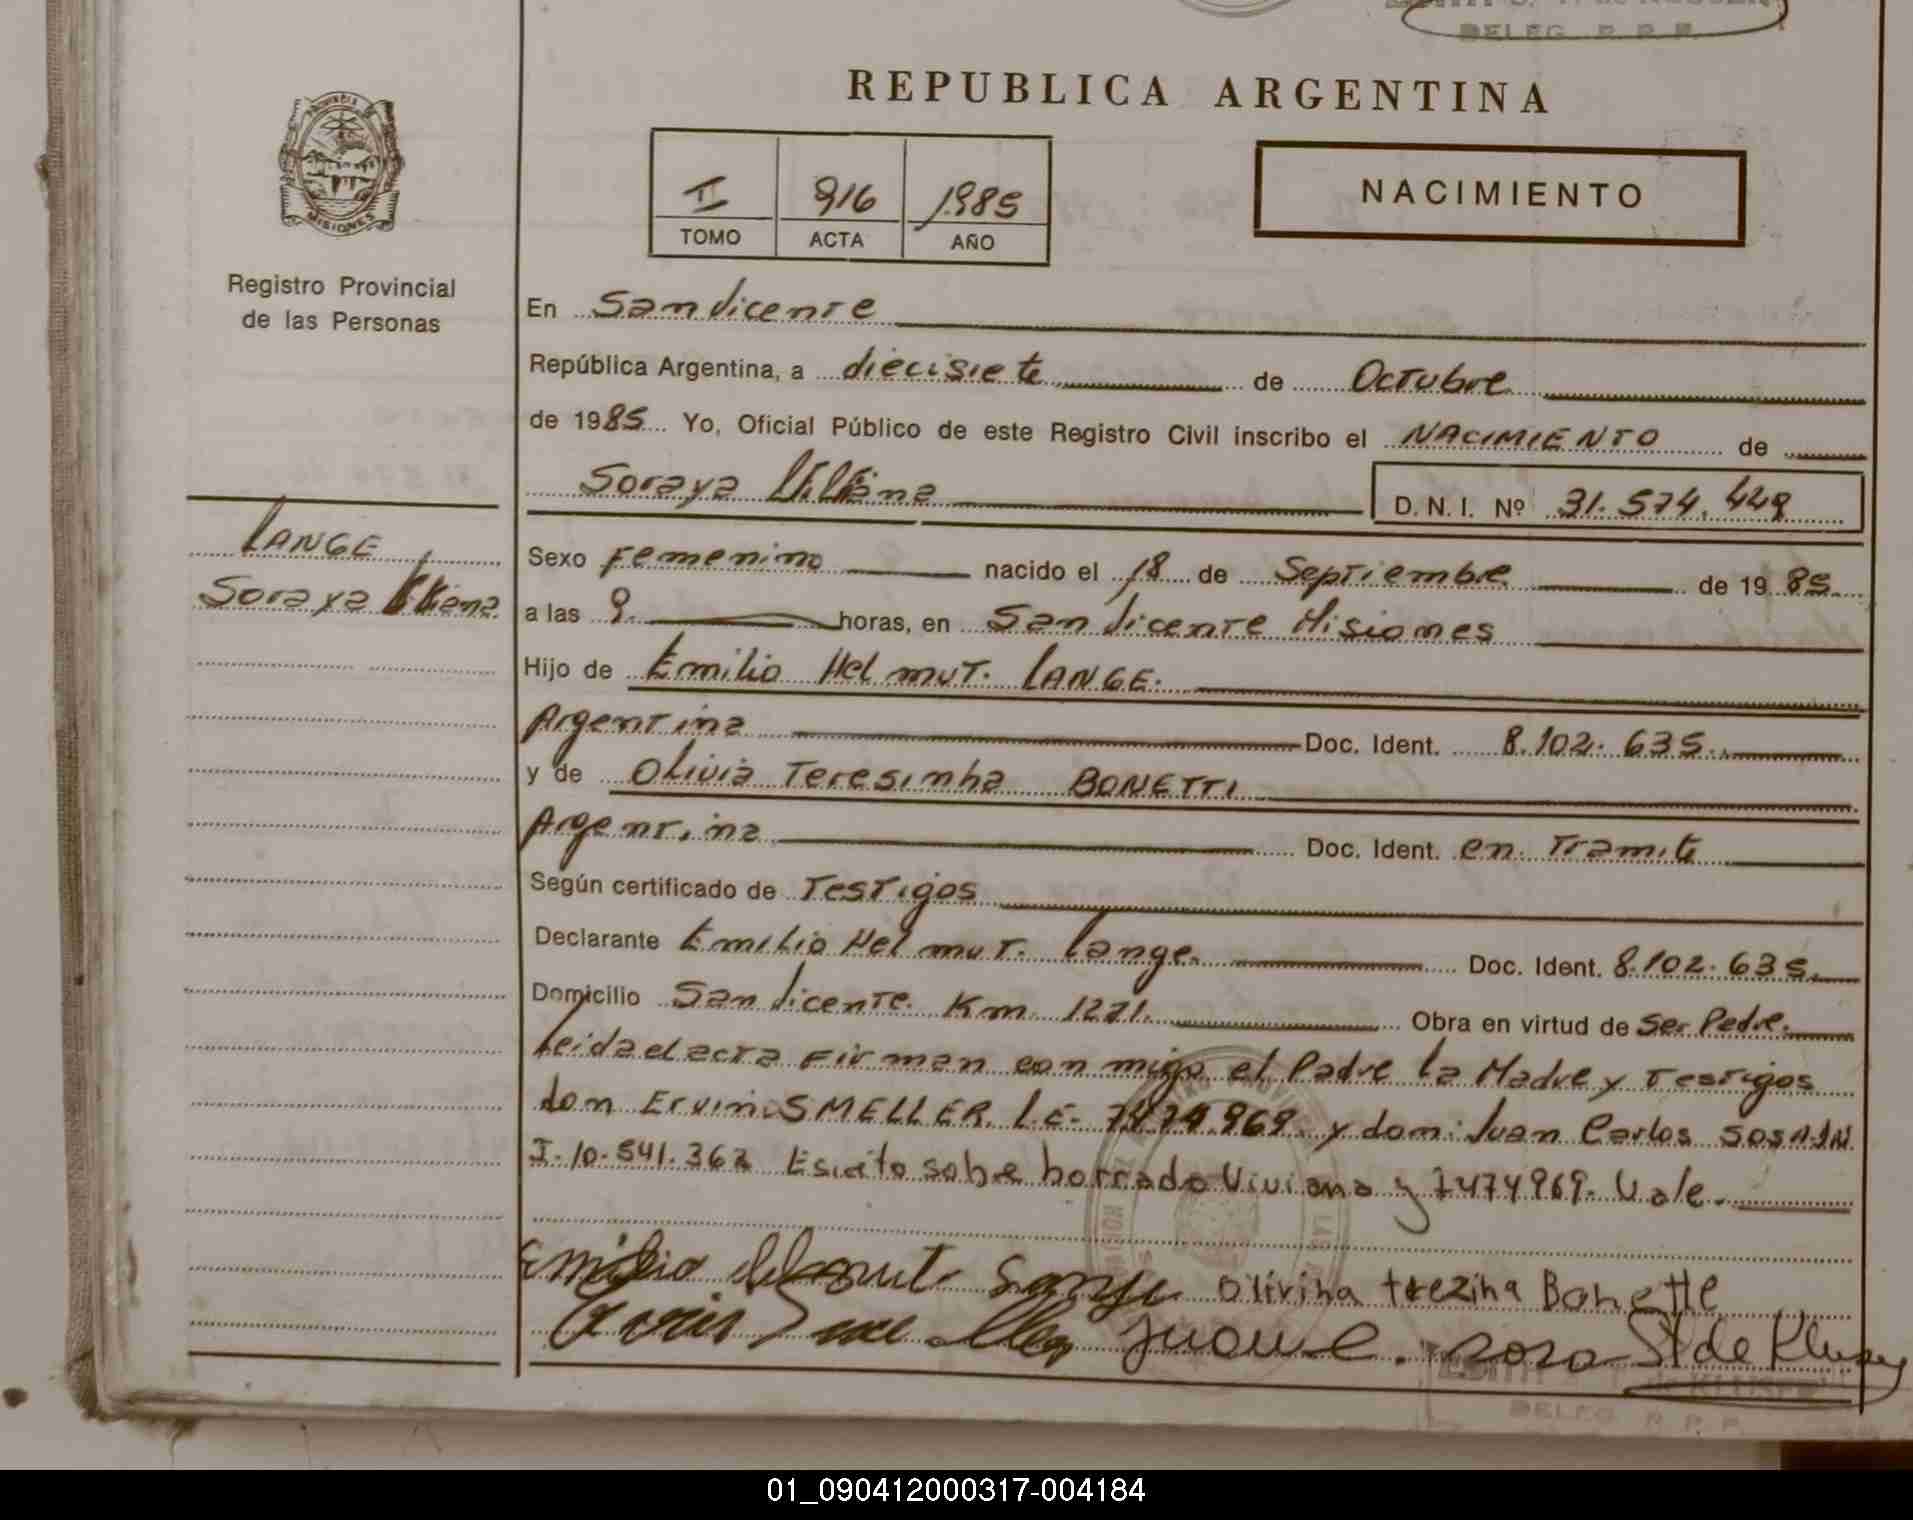 DELEG. R. P. P.
REPUBLICA ARGENTINA
PROVINCIA DE
MISIONES
II 916 1985
TOMO ACTA AÑO
NACIMIENTO
Registro Provincial
de las Personas
En San Vicente
República Argentina, a diecisiete de Octubre
de 1985 Yo, Oficial Público de este Registro Civil inscribo el NACIMIENTO de
Soraya
D. N. I. Nº 31.574.429
LANGE
Soraya
Sexo Femenino nacido el 18 de Septiembre de 1985
a las 9. horas, en San Vicente Misiones
Hijo de Emilio Helmut. LANGE.
Argentina Doc. Ident. 8.102.635.
y de Olivia Teresinha BONETTI
Argentina Doc. Ident. en Tramite
Según certificado de Testigos
Declarante Emilio Helmut. Lange. Doc. Ident. 8.102.635.
Domicilio San Vicente. Km 1271. Obra en virtud de Ser Padre.
Leida el acta Firman con migo el Padre la Madre y Testigos
don Ervin SMELLER. L.E. 7474.969. y don: Juan Carlos SOSA D.N.
I. 10.541.362 Escrito sobre borrado Viviana y 7474969. Vale.
Emilio Helmut Lange Olivina trezina Bonette
Juan C. Sosa S. de
DELEG. R. P. P.
01_090412000317-004184